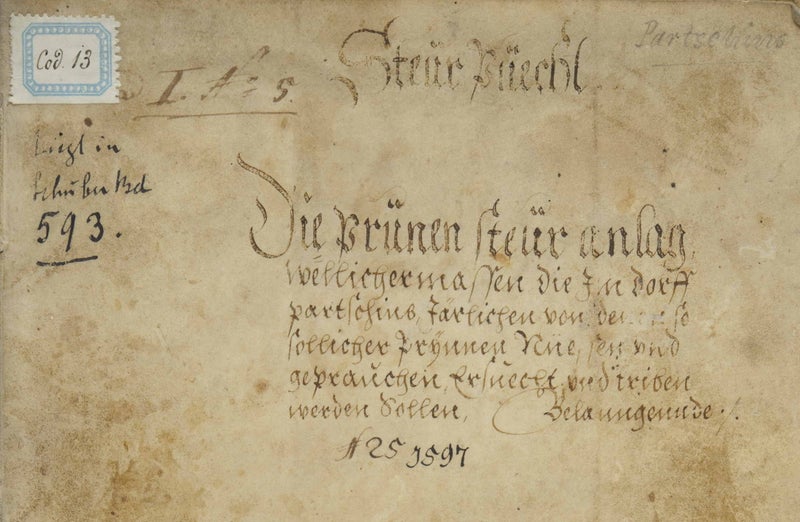 Cod. 13
I. No 5.
Steür Püechl
Partschins
Ligt in
Schuber Bd
593.
Die Prünen steür anlag,
wöllichermassen die Im dorff
partschins, Järlichen von denen so
sollicher Prÿnnen Niessen vnd
geprauchen, Ersuecht, vnd triben
werden Sollen, Belanngennde ./.
N 25 1597